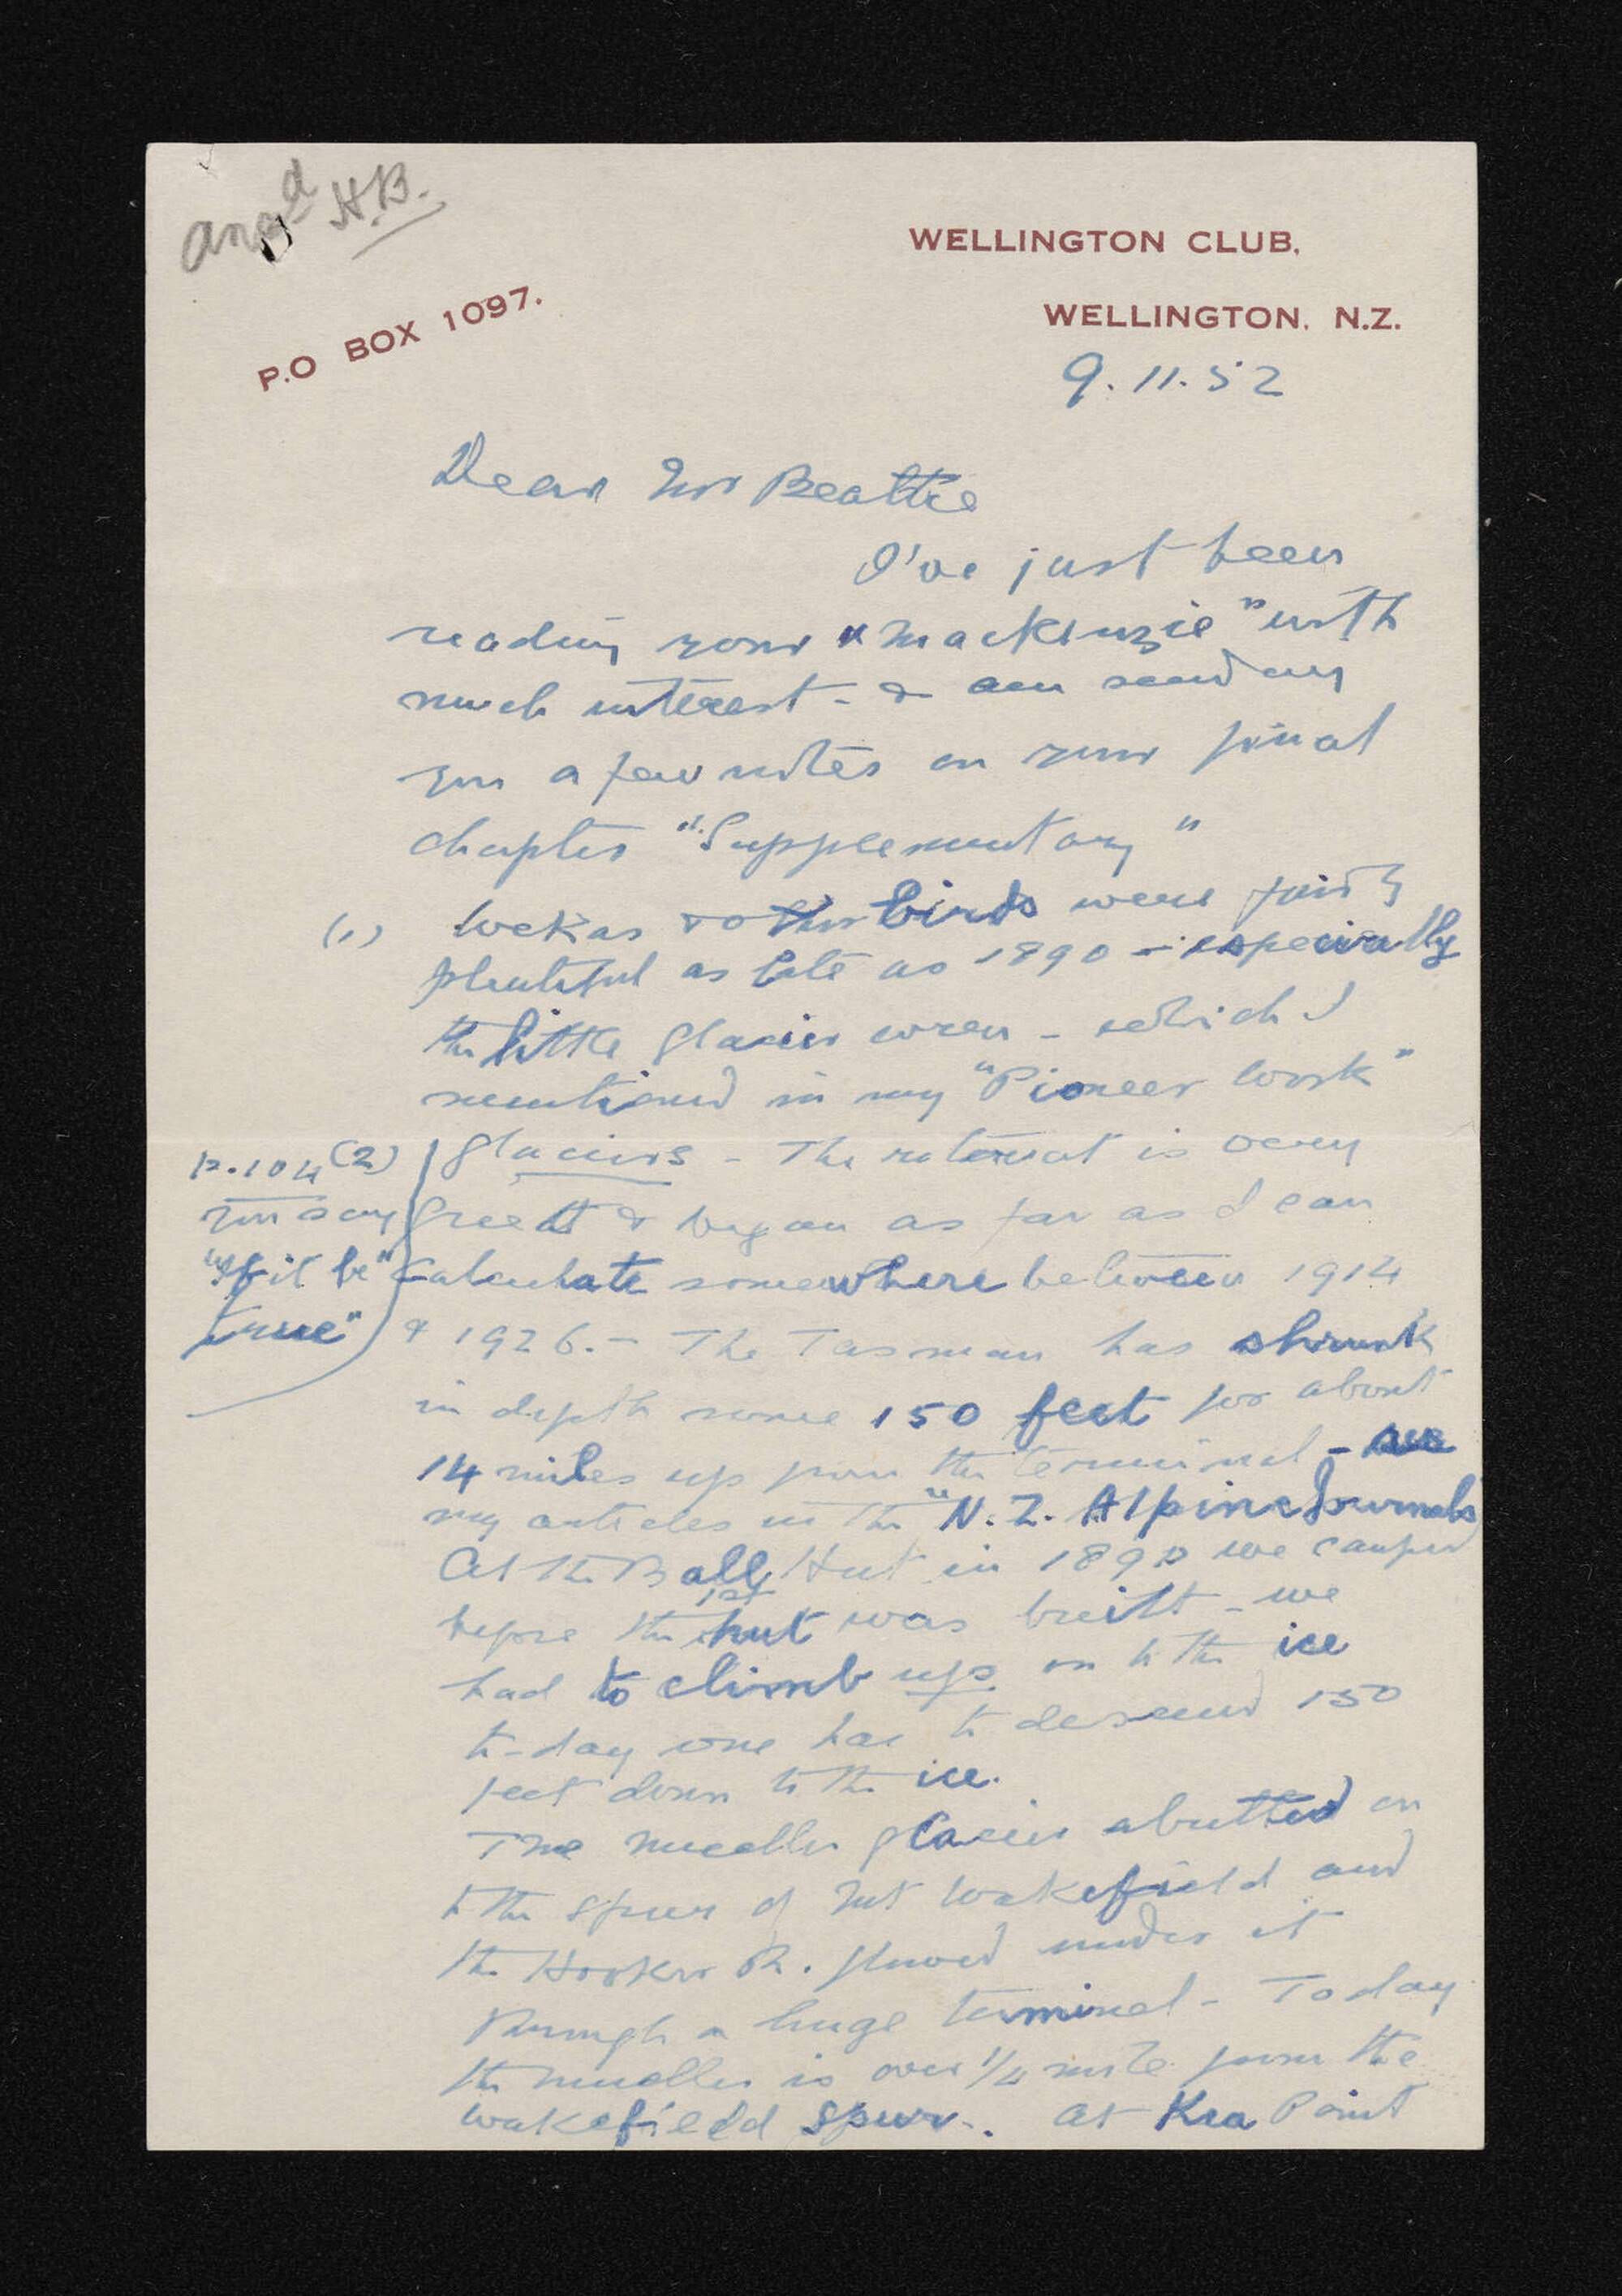 ansd H.B.
P.O BOX 1097.
WELLINGTON CLUB,
WELLINGTON, N.Z.
9.11.52
Dear Mr Beattie
I've just been
reading your "Mackenzie" with
much interest - & am sending
you a few notes on your final
chapter "Supplementary"
(1) Wekas & other birds were fairly
plentiful as late as 1890 - especially
the little glacier wren - which I
mentioned in my "Pioneer Work"
p. 104 (2)
you say
"If it be
true"
Glaciers - The retreat is very
great & began as far as I can
calculate somewhere between 1914
& 1926. - The Tasman has shrunk
in depth some 150 feet for about
14 miles up from the terminal - see
my articles in the "N.Z. Alpine Journals
At the Ball Hut in 1890 we camped
before the 1st hut was built - we
had to climb up on to the ice
to-day one has to descend 150
feet down to the ice.
The Mueller glacier abutted on
to the spur of Mt Wakefield and
the Hooker R. flowed under it
through a huge terminal - Today
the Mueller is over 1/4 mile from the
Wakefield spur. At Kea Point